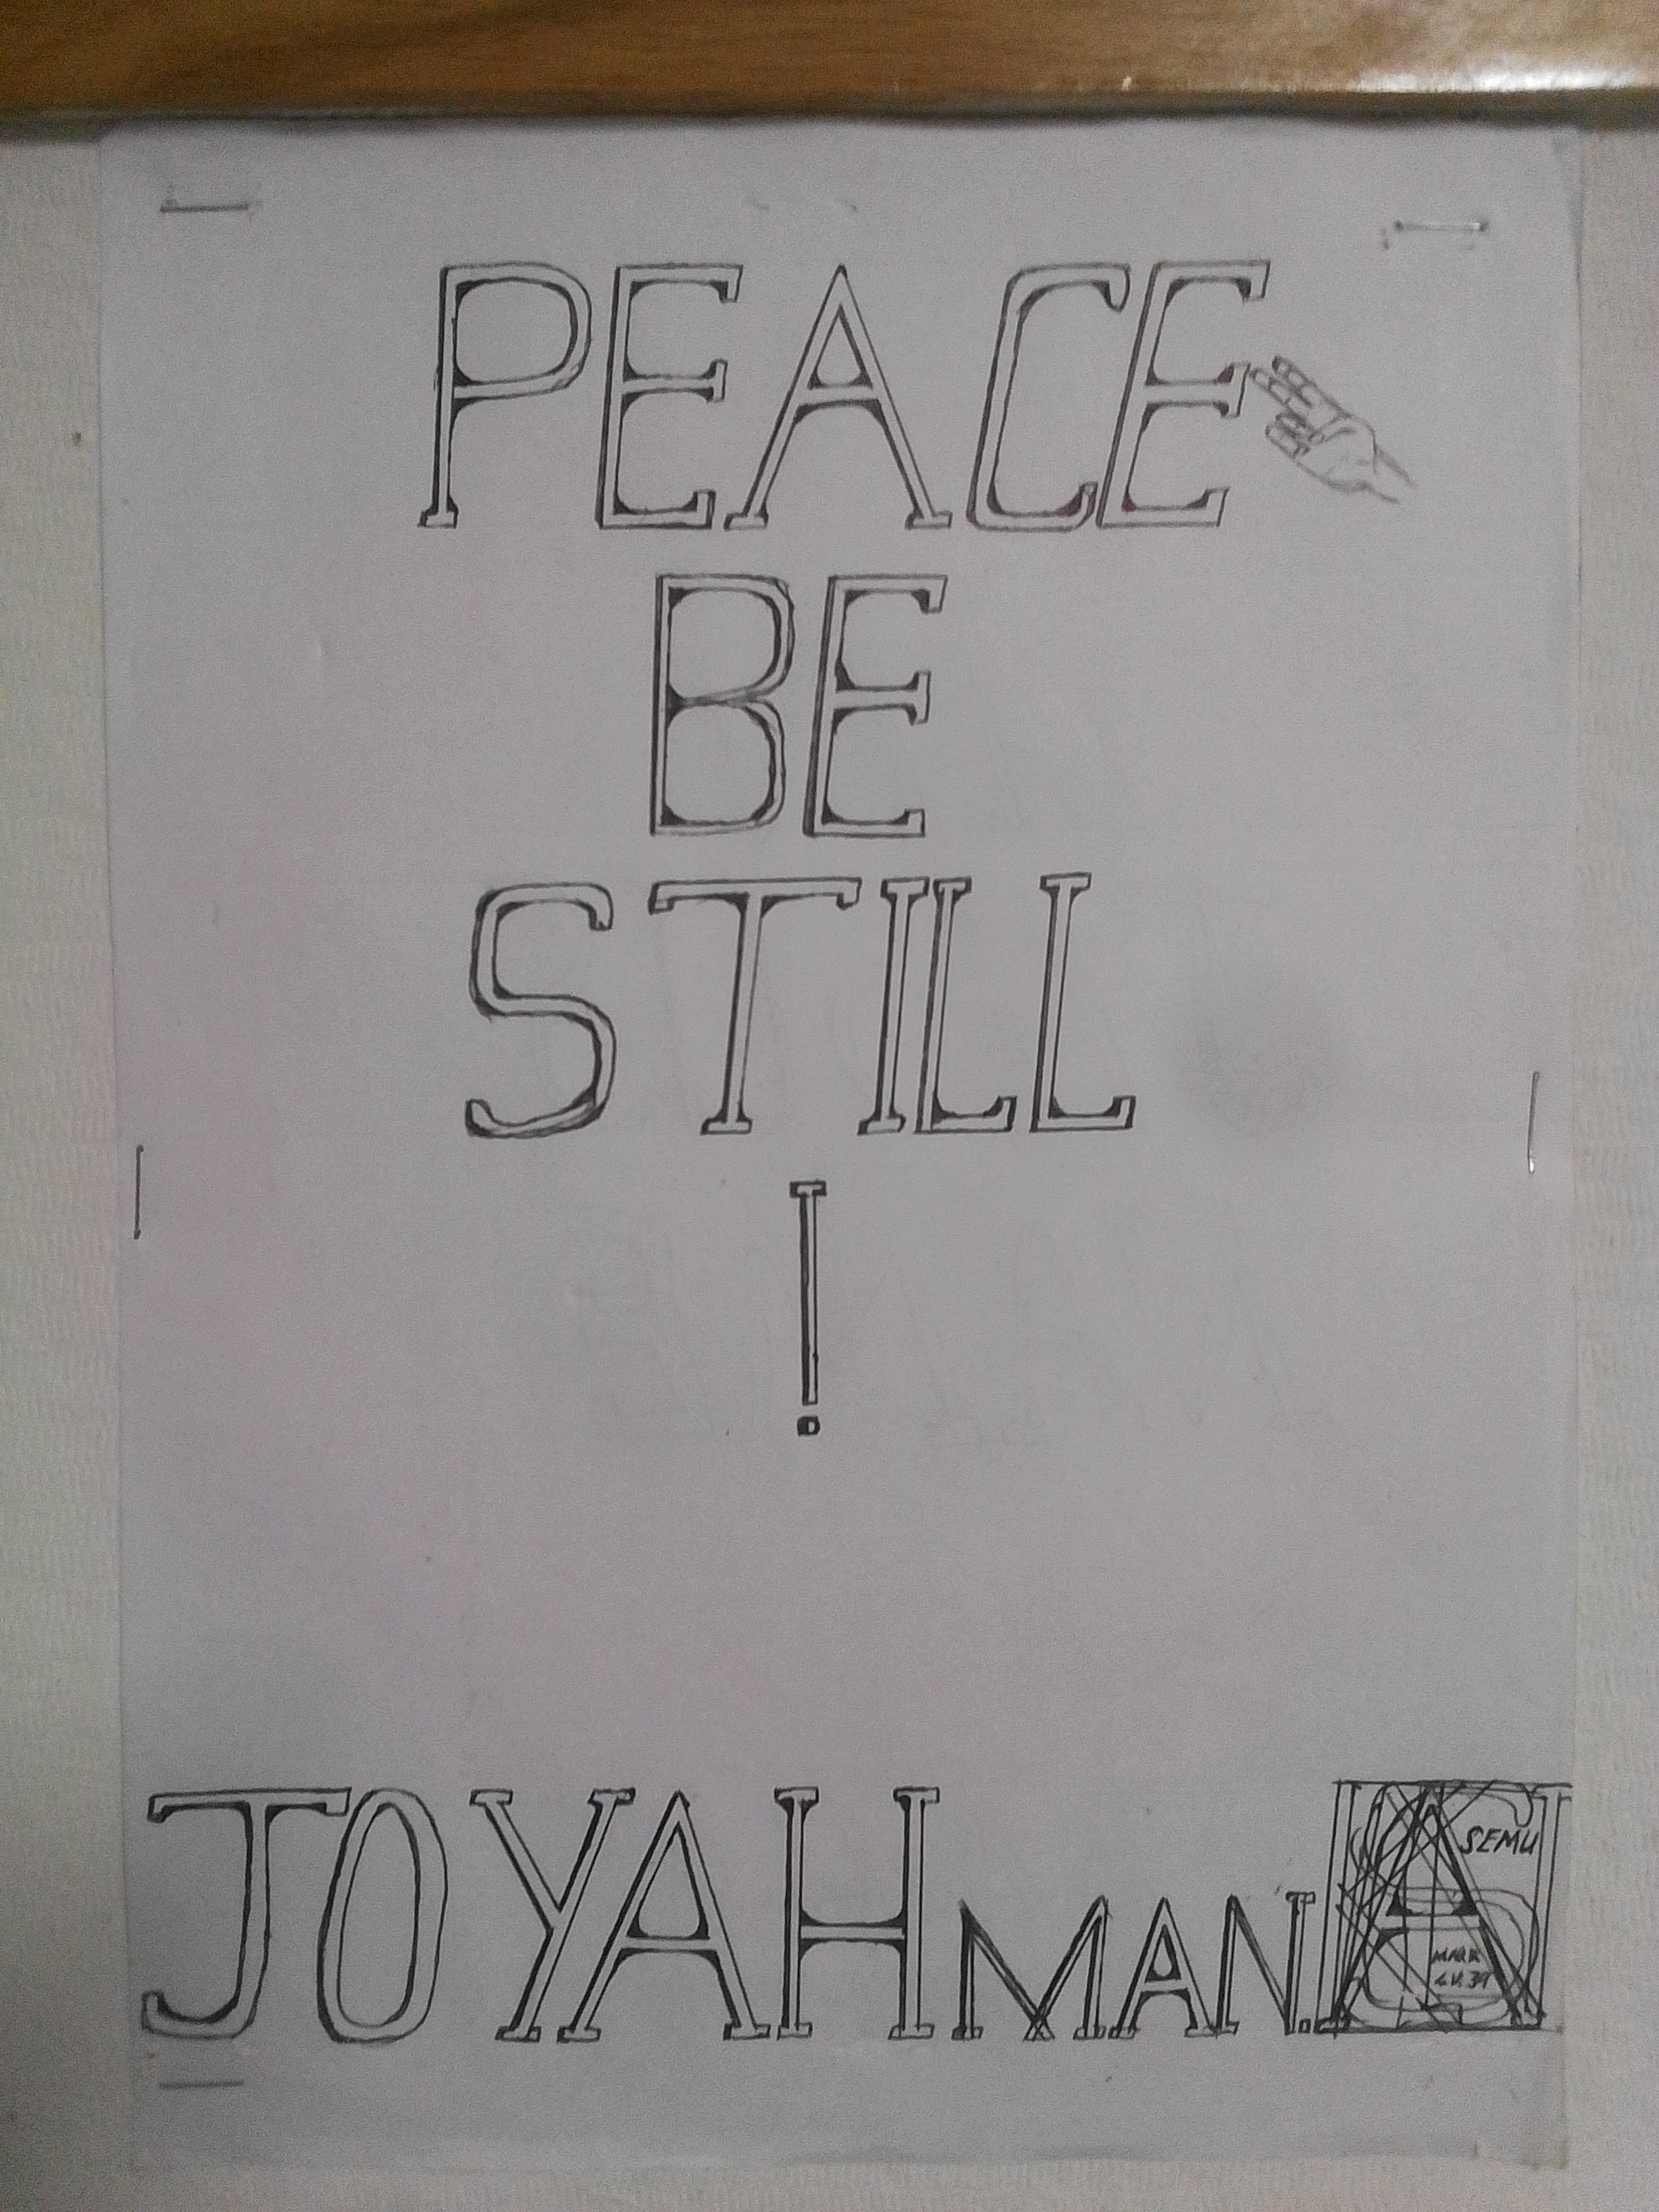 PEACE
BE
STILL
!
JOYAHMAN.
SEMU
MARK